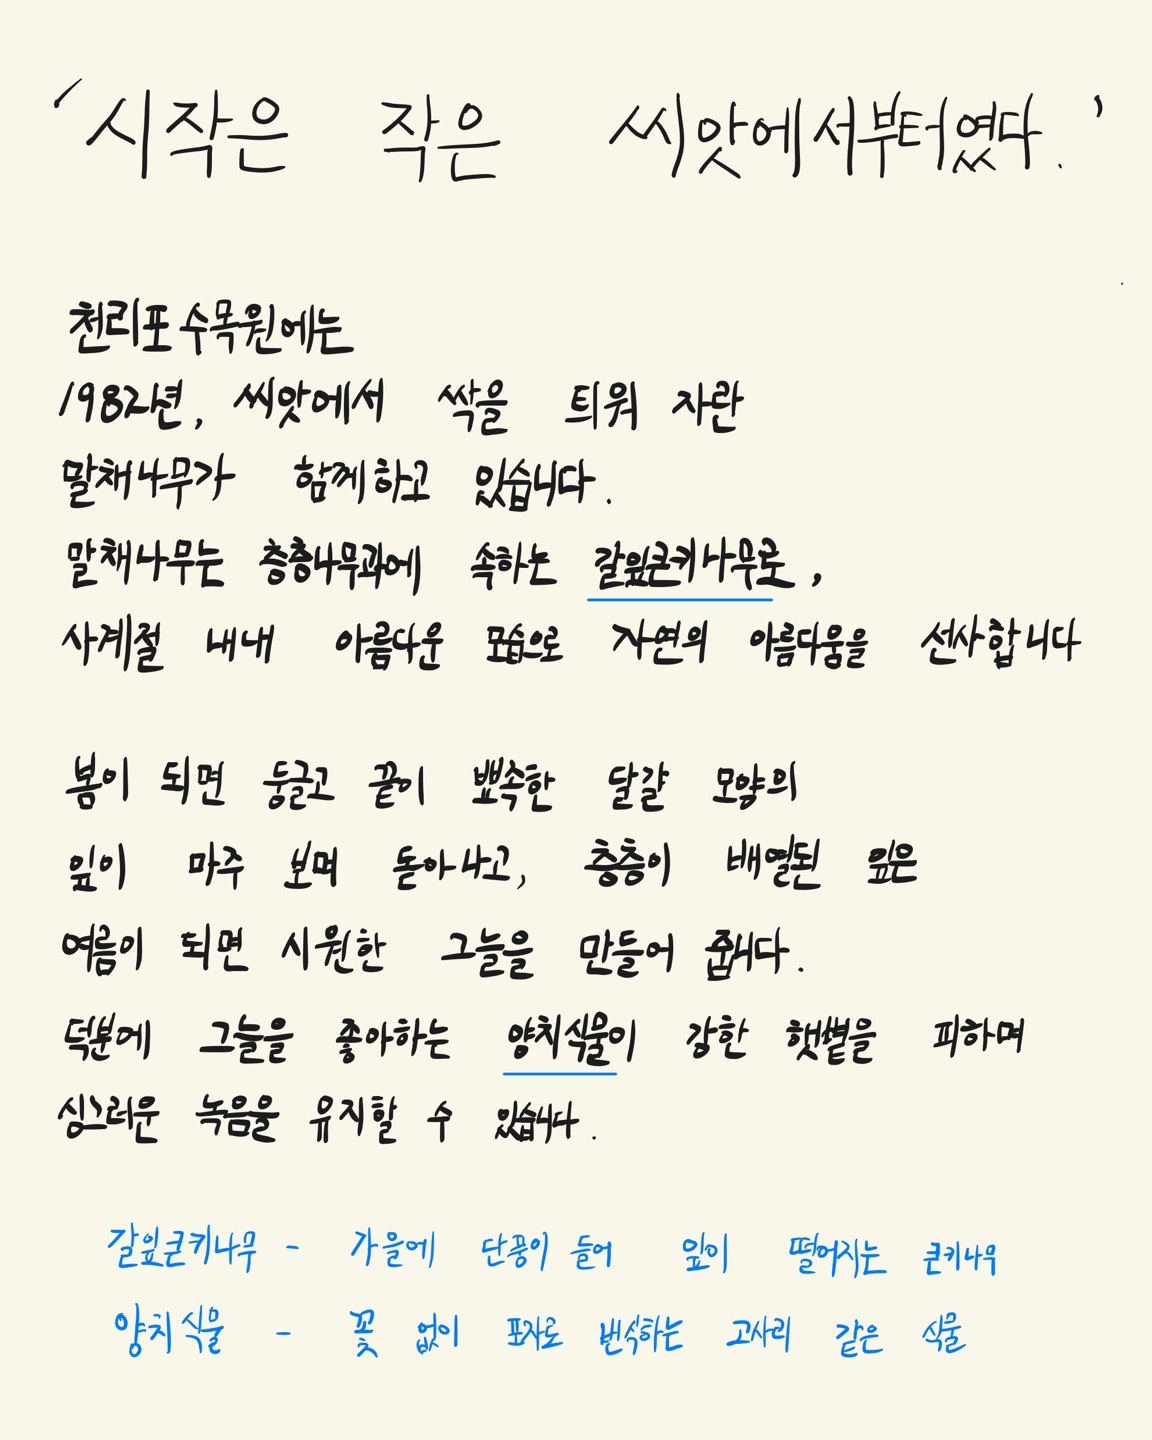 '시작은 작은 씨앗에서부터였다.'
천리포수목원에는
1982년, 씨앗에서 싹을 틔워 자란
말채나무가 함께하고 있습니다.
말채나무는 층층나무과에 속하는 갈잎큰키나무로,
사계절 내내 아름다운 모습으로 자연의 아름다움을 선사합니다
봄이 되면 둥글고 끝이 뾰족한 달걀 모양의
잎이 마주 보며 돋아나고, 층층이 배열된 잎은
여름이 되면 시원한 그늘을 만들어 줍니다.
덕분에 그늘을 좋아하는 양치식물이 강한 햇볕을 피하며
싱그러운 녹음을 유지할 수 있습니다.
갈잎큰키나무 - 가을에 단풍이 들어 잎이 떨어지는 큰키나무
양치식물 - 꽃 없이 포자로 번식하는 고사리 같은 식물